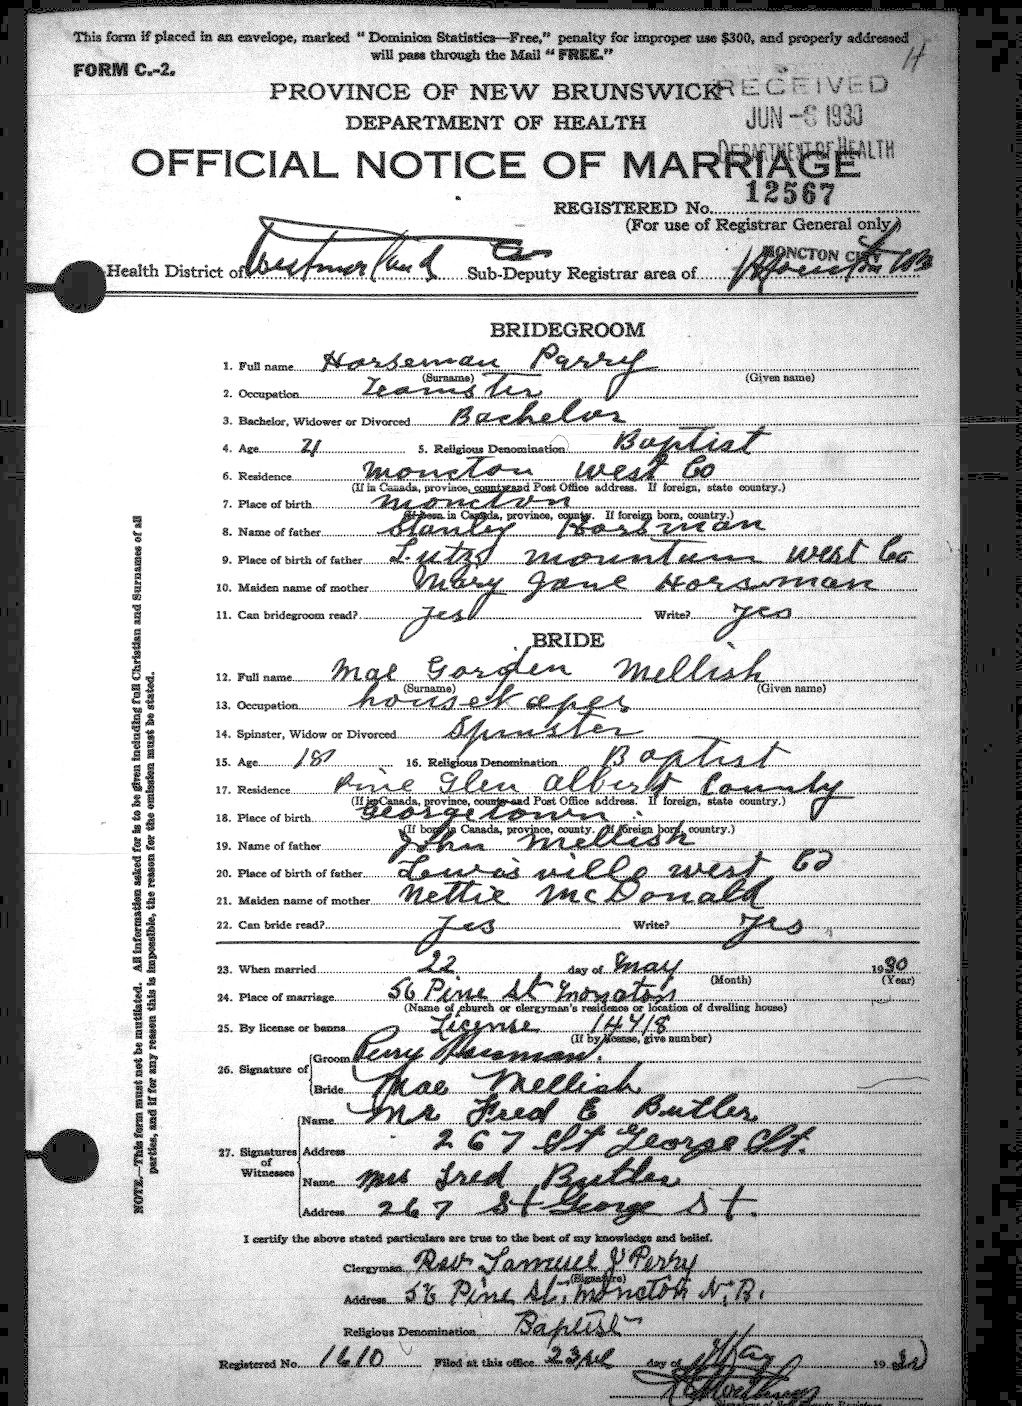 This form if placed in an envelope, marked "Dominion Statistics—Free," penalty for improper use $300, and properly addressed
will pass through the Mail "FREE."
H
FORM C.-2.
PROVINCE OF NEW BRUNSWICK
RECEIVED
JUN -6 1930
DEPARTMENT OF HEALTH
DEPARTMENT OF HEALTH
OFFICIAL NOTICE OF MARRIAGE
REGISTERED No. 12567
(For use of Registrar General only)
MONCTON CITY
Health District of Westmorland Co Sub-Deputy Registrar area of Moncton NB
BRIDEGROOM
1. Full name Horseman Parry
(Surname) (Given name)
2. Occupation Teamster
3. Bachelor, Widower or Divorced Bachelor
4. Age 21 5. Religious Denomination Baptist
6. Residence Moncton West Co
(If in Canada, province, county and Post Office address. If foreign, state country.)
7. Place of birth Moncton
(If born in Canada, province, county. If foreign born, country.)
8. Name of father Stanley Horsman
9. Place of birth of father Lutzs mountain West Co
10. Maiden name of mother Mary Jane Horseman
11. Can bridegroom read? Yes Write? Yes
BRIDE
12. Full name Mae Gorden Mellish
(Surname) (Given name)
13. Occupation housekeper
14. Spinster, Widow or Divorced Spinster
15. Age 18 16. Religious Denomination Baptist
17. Residence Pine Glen Albert County
(If in Canada, province, county and Post Office address. If foreign, state country.)
18. Place of birth Georgetown
(If born in Canada, province, county. If foreign born, country.)
19. Name of father John Mellish
20. Place of birth of father Lewisville West Co
21. Maiden name of mother Nettie McDonald
22. Can bride read? Yes Write? Yes
23. When married 22 day of May 1930
(Month) (Year)
24. Place of marriage 56 Pine St Moncton
(Name of church or clergyman's residence or location of dwelling house)
25. By license or banns License 14718
(If by license, give number)
26. Signature of Groom Perry Horsman.
Bride Mae Mellish
27. Signatures of Witnesses
Name Mr Fred E Butler
Address 267 St George St.
Name Mrs Fred Butler
Address 267 St George St.
I certify the above stated particulars are true to the best of my knowledge and belief.
Clergyman Rev Samuel J Perry
(Signature)
Address 56 Pine St. Moncton N.B.
Religious Denomination Baptist
Registered No. 1610 Filed at this office 23rd day of May 1930
NOTE.—This form must not be mutilated. All information asked for is to be given including full Christian and Surnames of all
parties, and if for any reason this is impossible, the reason for the omission must be stated.